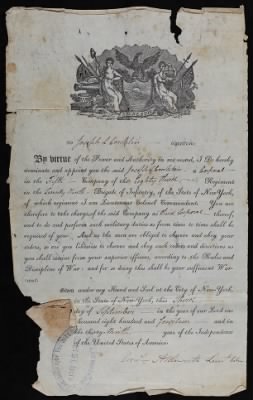 To Joseph L Conklin Greeting
By virtue of the Power and Authority in me vested, I Do hereby
nominate and appoint you the said Joseph L Conklin a Corporal
in the Fifth Company of the Eighty Third Regiment
in the Twenty Ninth Brigade of Infantry, of the State of New-York,
of which regiment I am Lieutenant Colonel Commandant. You are
therefore to take charge of the said Company as Third Corporal thereof,
and to do and perform such military duties as from time to time shall be
required of you. And as the men are obliged to observe and obey your
orders, so are you likewise to observe and obey such orders and directions as
you shall receive from your superior officers, according to the Rules and
Discipline of War: and for so doing this shall be your sufficient War-
rant.
Given under my Hand and Seal at the City of New-York,
in the State of New-York, this Third
day of September in the year of our Lord one
thousand eight hundred and Fourteen and in
the thirty Ninth year of the Independence
of the United States of America.